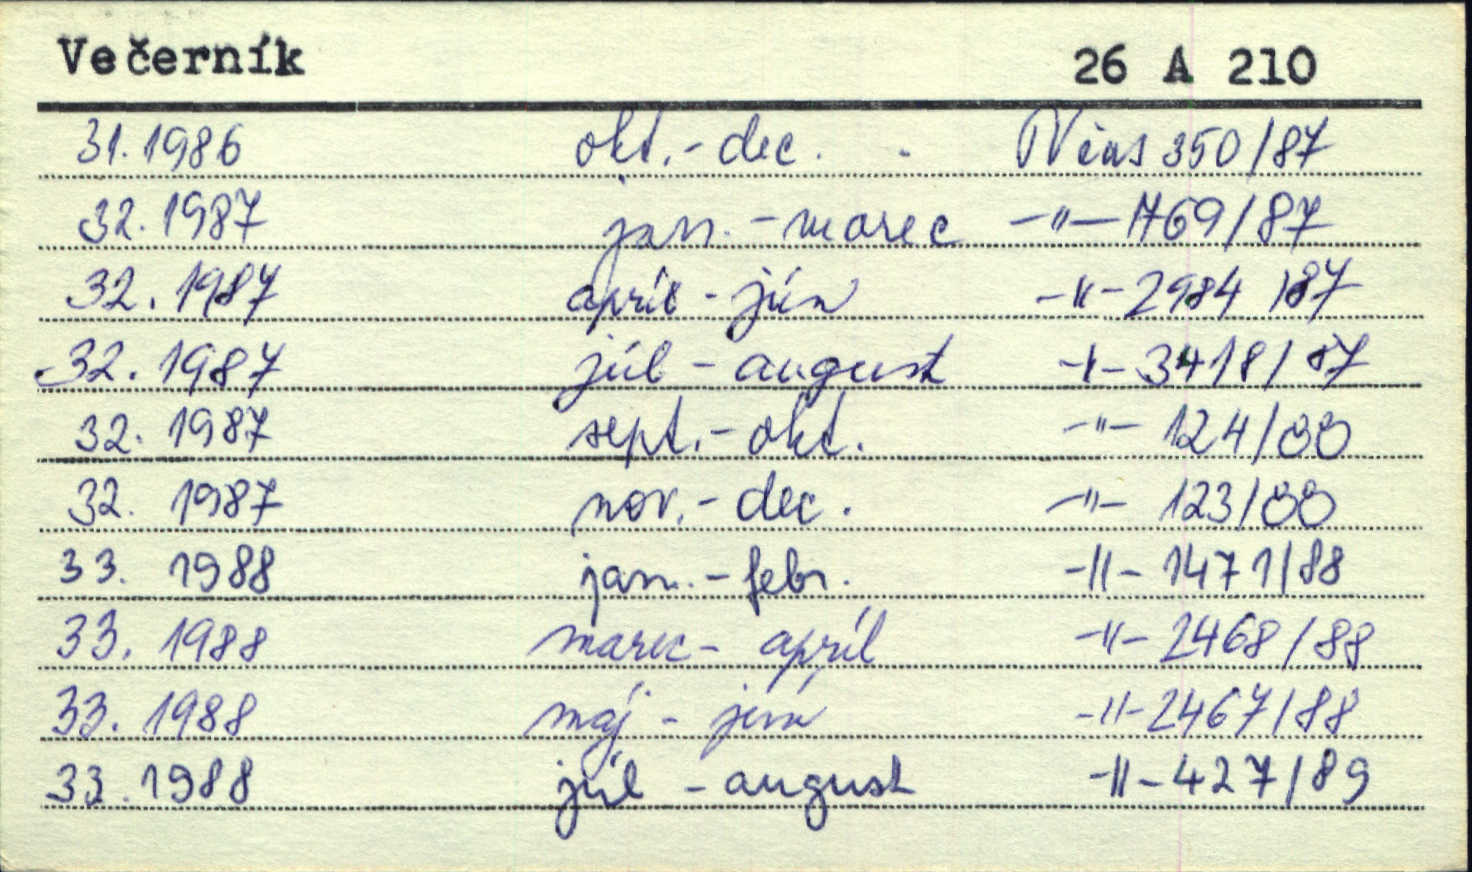 Večerník 26 A 210
31. 1986 okt. - dec. Včas 350/87
32. 1987 jan. - marec -"- 1769/87
32. 1987 apríl - jún -"- 2984/87
32. 1987 júl - august -"- 3418/87
32. 1987 sept. - okt. -"- 124/88
32. 1987 nov. - dec. -"- 123/88
33. 1988 jan. - febr. -"- 1471/88
33. 1988 marec - apríl -"- 2468/88
33. 1988 máj - jún -"- 2467/88
33. 1988 júl - august -"- 427/89